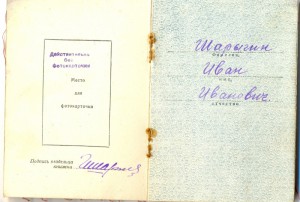 Действительно
без
фотокарточки
Место
для
фотокарточки
Подпись владельца
книжки
Шарыгин
фамилия
Иван
имя
Иванович
отчество